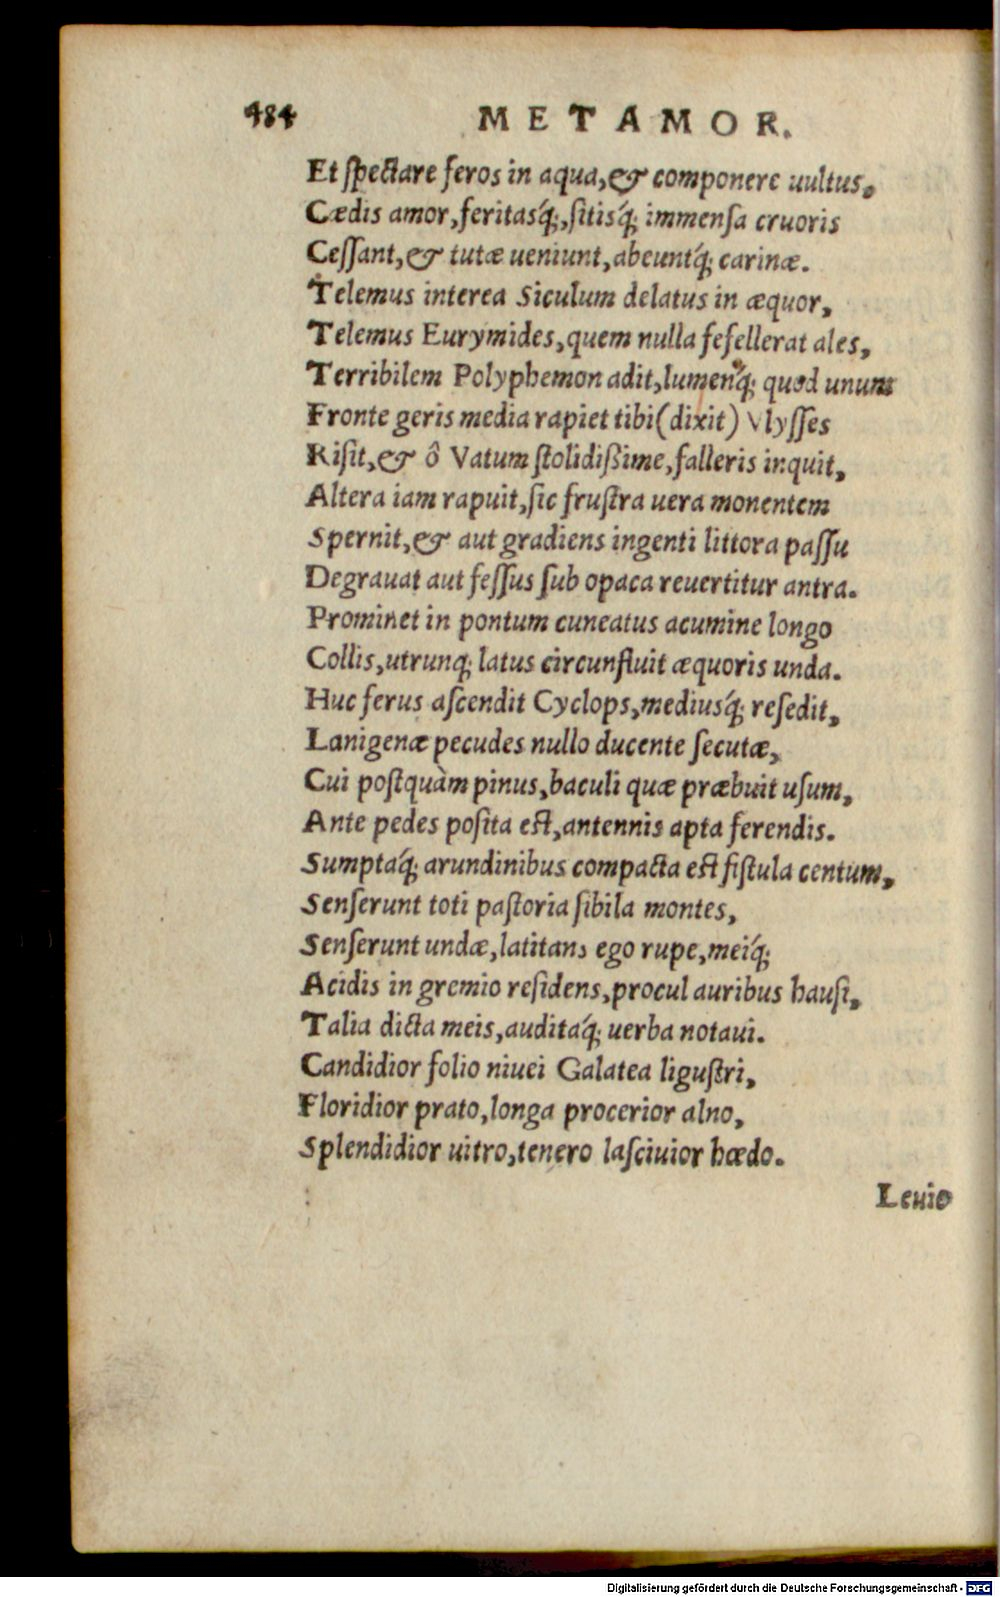 484 METAMOR.
Et ſpectare feros in aqua, & componere uultus,
Cædis amor, feritasq́;, ſitisq́; immenſa cruoris
Ceſſant, & tutæ ueniunt, abeuntq́; carinæ.
Telemus interea Siculum delatus in æquor,
Telemus Eurymides, quem nulla fefellerat ales,
Terribilem Polyphemon adit, lumenq́; quod unum
Fronte geris media rapiet tibi (dixit) Vlyſſes
Riſit, & ô Vatum ſtolidißime, falleris inquit,
Altera iam rapuit, ſic fruſtra uera monentem
Spernit, & aut gradiens ingenti littora paſſu
Degrauat aut feſſus ſub opaca reuertitur antra.
Prominet in pontum cuneatus acumine longo
Collis, utrunq; latus circunfluit æquoris unda.
Huc ferus aſcendit Cyclops, mediusq́; reſedit,
Lanigenæ pecudes nullo ducente ſecutæ,
Cui poſtquàm pinus, baculi quæ præbuit uſum,
Ante pedes poſita eſt, antennis apta ferendis.
Sumptaq́; arundinibus compacta eſt fiſtula centum,
Senſerunt toti paſtoria ſibila montes,
Senſerunt undæ, latitans ego rupe, meiq́;
Acidis in gremio reſidens, procul auribus hauſi,
Talia dicta meis, auditaq́; uerba notaui.
Candidior folio niuei Galatea liguſtri,
Floridior prato, longa procerior alno,
Splendidior uitro, tenero laſciuior hœdo.
Leuio
Digitalisierung gefördert durch die Deutsche Forschungsgemeinschaft - DFG